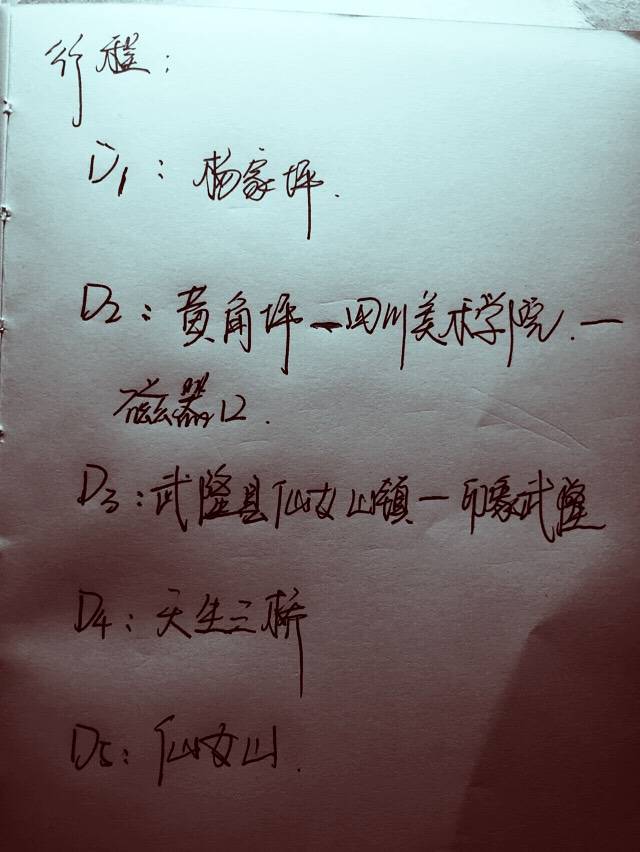 行程:
D1: 杨家坪.
D2: 黄角坪—四川美术学院.—
磁器口.
D3: 武隆县仙女山镇—印象武隆
D4: 天生三桥
D5: 仙女山.